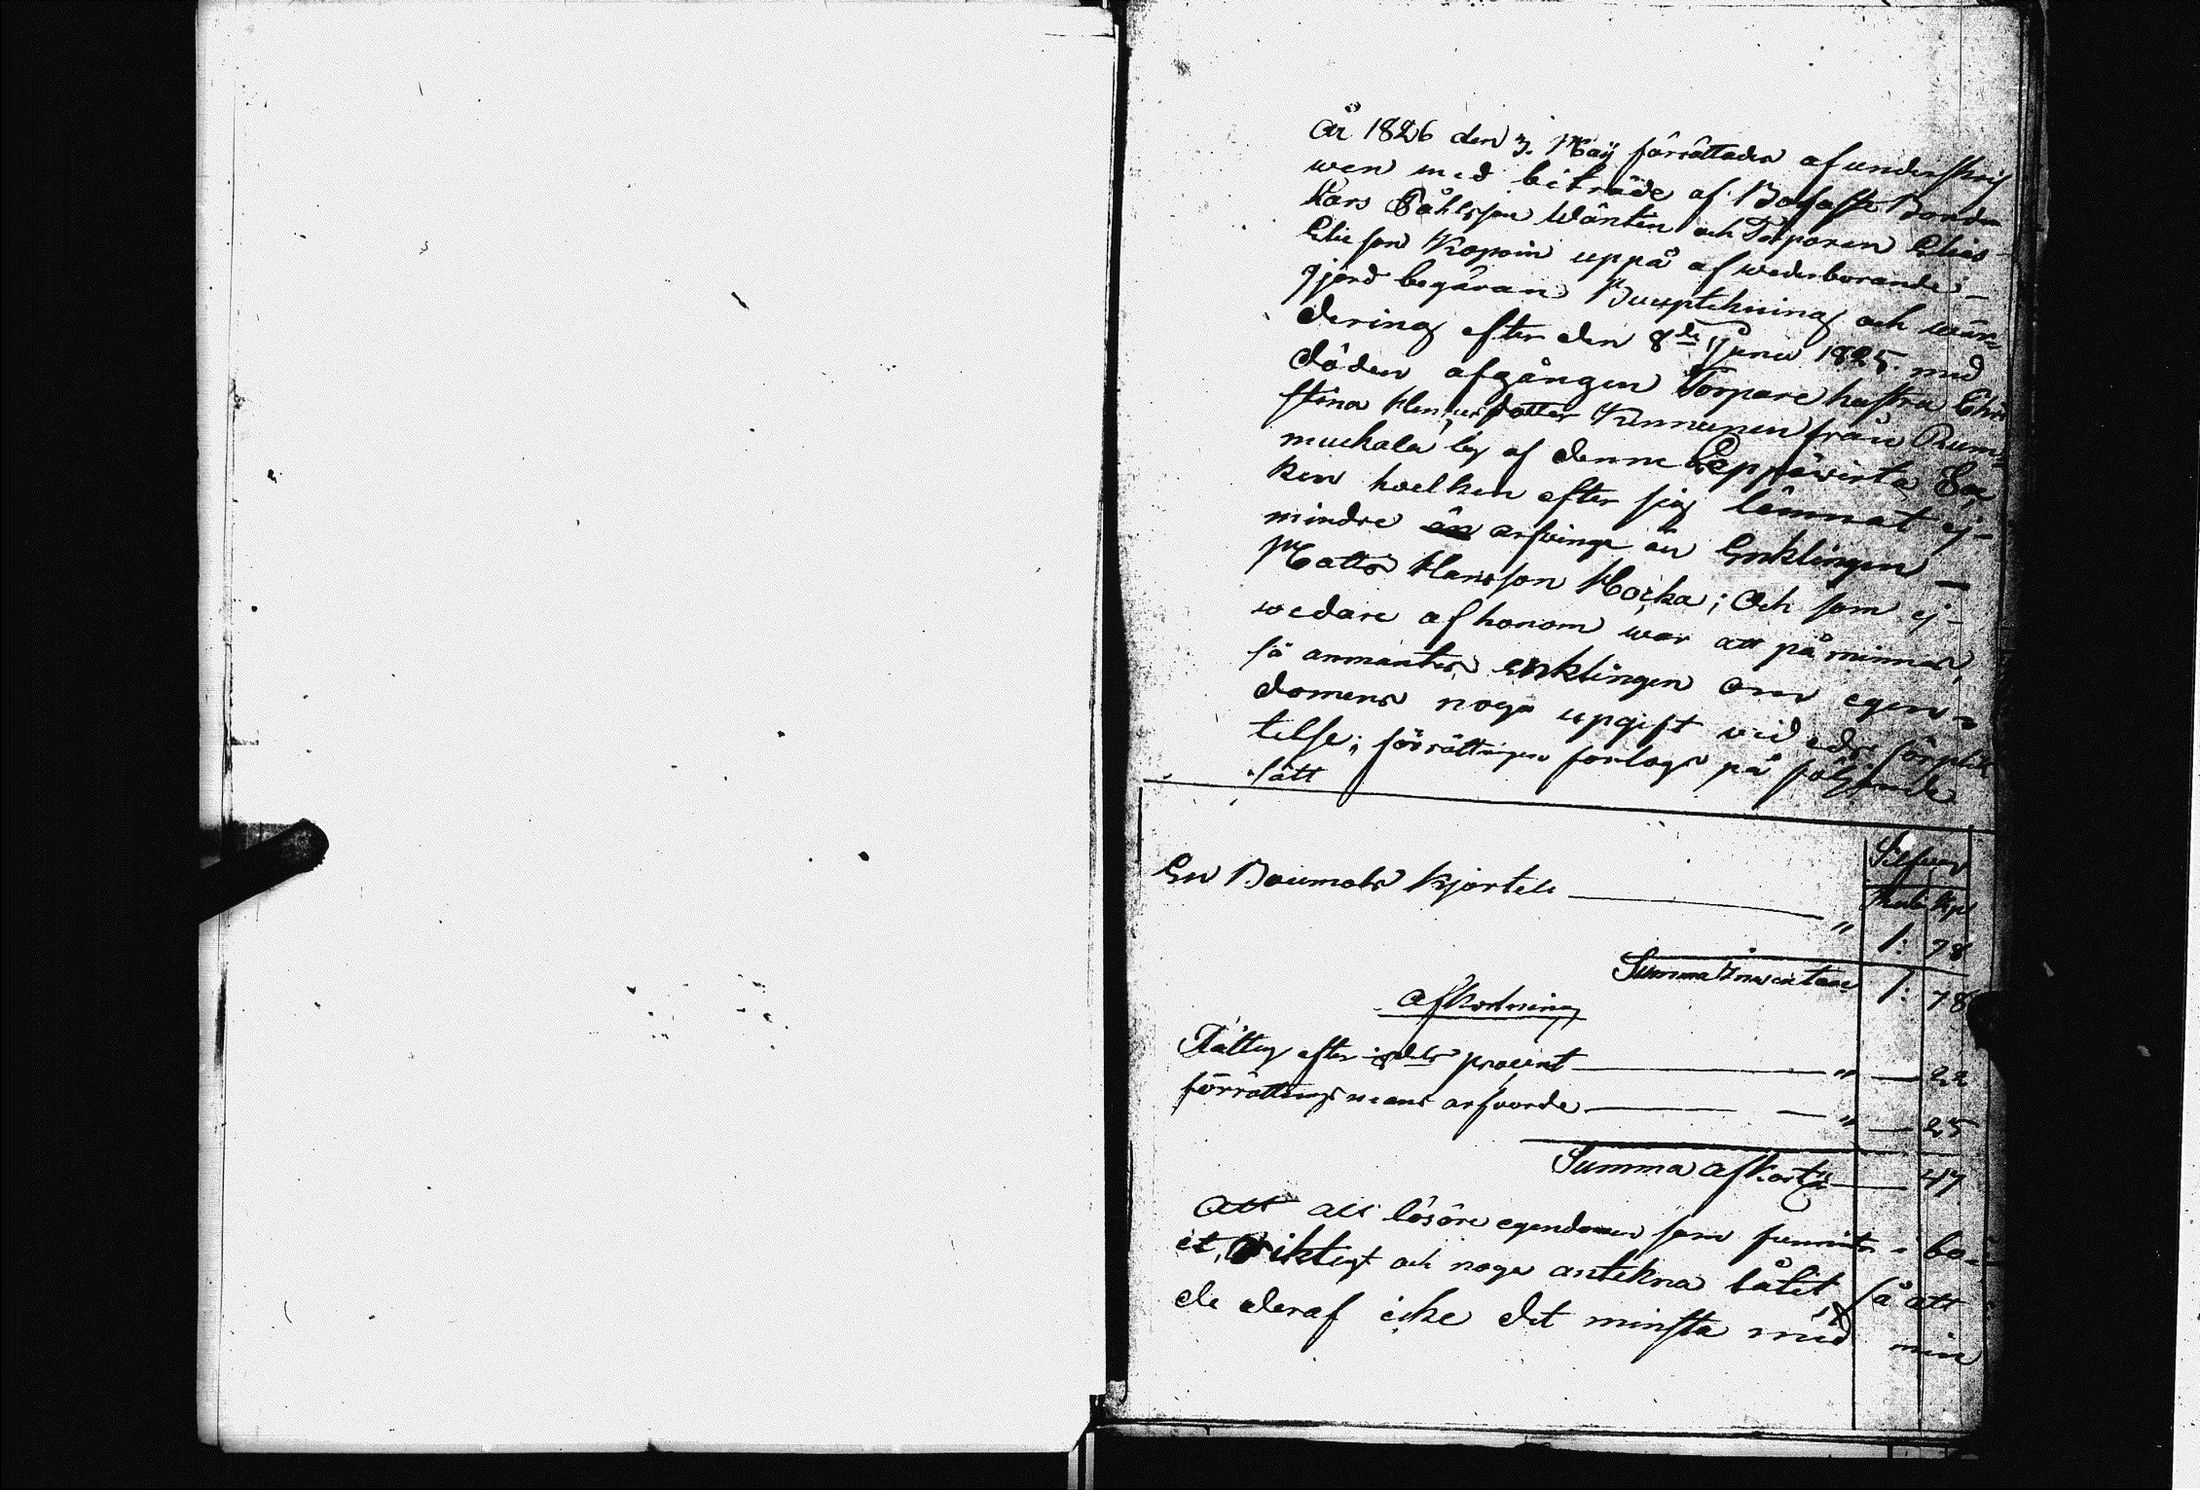 År 1826 den 3. Maij förrättades af underskrif
wen med biträde af Bofaste Bonde
Lars Påhlsson Wänten och Torparen Elias
Elieson Kopoin uppå af wederborande
gjord begäran Bouptekning och wär-
dering efter den 8de Junii 1825. med
döden afgången Torpare hustra Chri
stina Henricsdotter Kinnunen från Rum-
mukala by af denne Leppävirta Soc
ken hvelken efter sig lämnat ej
mindre arfvinge än Enklingen
Matts Hansson Hocka; Och som ej
wedare af honom war att påminnas,
så anmantes enklingen om egen-
domens noga upgift vid eds förplik
telse; förrättningen forlags på följande
sätt
Silfver
Rub: Kop
En Boumols Kjortell " 1: 78
Summa Inventarie 1: 78
Afkortning
Fattig efter procent " — 22
förrättnings mans arfvorde — " — 25
Summa Afkortn — 47
Att all lösöre egendomen som funnits i bo-
et, riktigt och noga antekna låtit, så att
de deraf icke det minsta med min